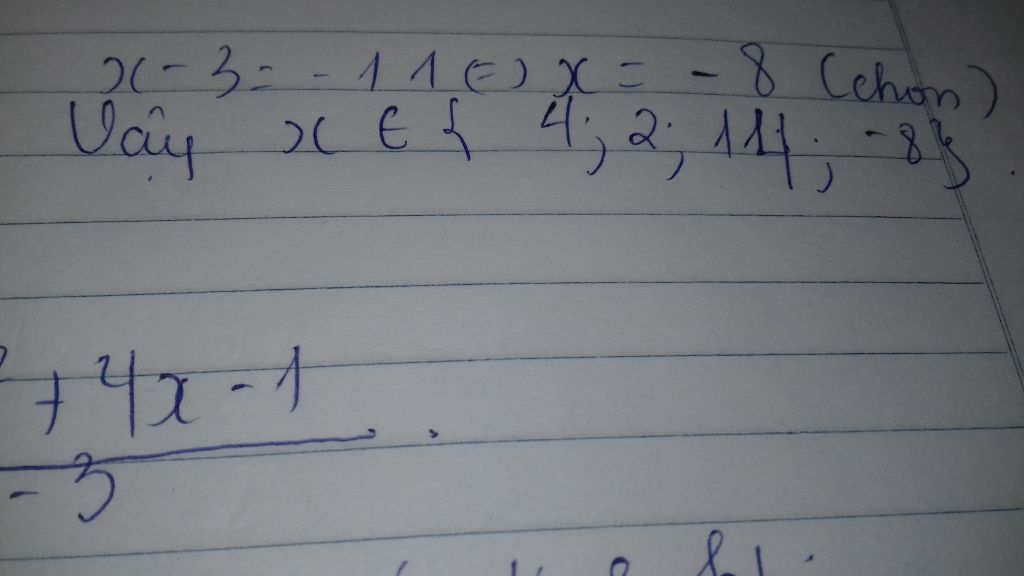 x - 3 = - 11 <=> x = - 8 (chọn)
Vậy x ∈ { 4; 2; 14; -8}.
+ 4x - 1 .
- 3